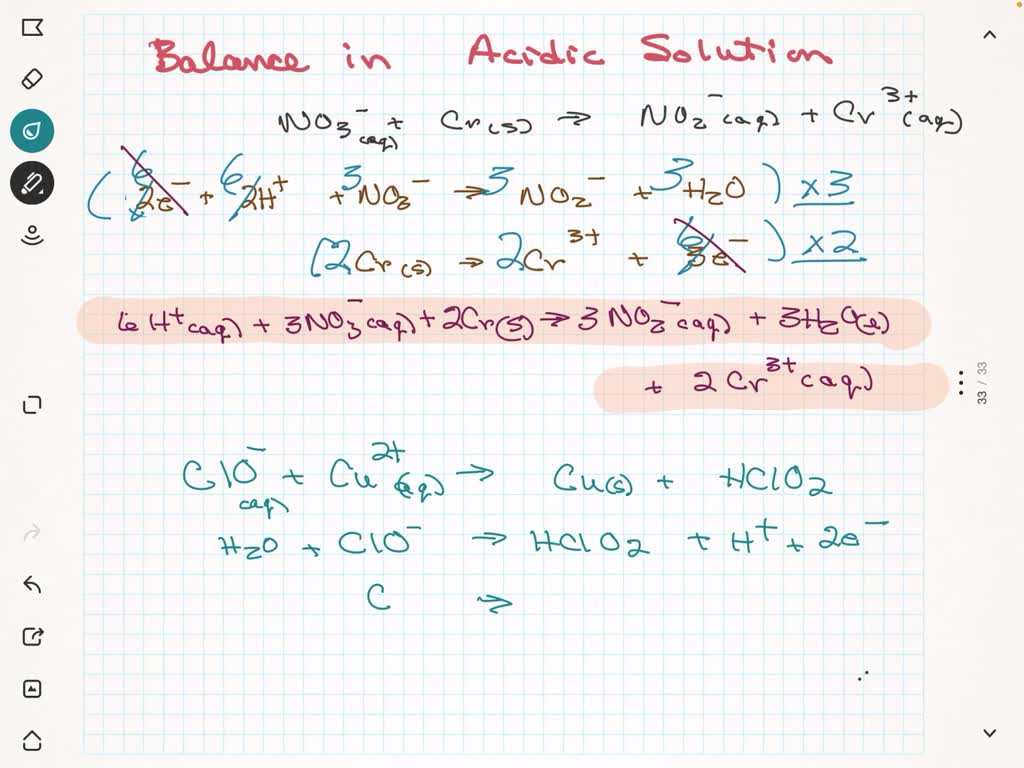 Balance in Acidic Solution
NO3⁻(aq) + Cr(s) → NO2⁻(aq) + Cr³⁺(aq)
(6 2e⁻ + 6 2H⁺ + 3NO3⁻ → 3 NO2⁻ + 3H2O) x3
(2Cr(s) → 2Cr³⁺ + 6 3e⁻) x2
6H⁺(aq) + 3NO3⁻(aq) + 2Cr(s) → 3NO2⁻(aq) + 3H2O(l)
+ 2Cr³⁺(aq)
33 / 33
ClO⁻(aq) + Cu²⁺(aq) → Cu(s) + HClO2
H2O + ClO⁻ → HClO2 + H⁺ + 2e⁻
C →